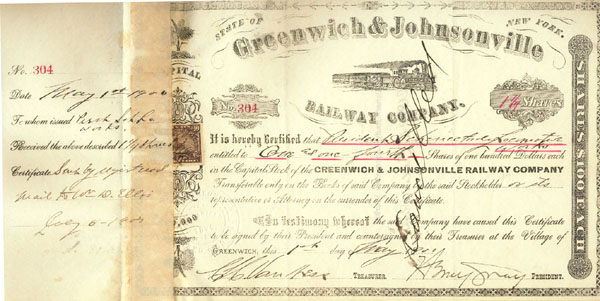 No. 304
Date May 1st 1900
To whom issued
Received the above described 1 1/4 Shares
Certificate Sent by
Mail to W. D. Ellis
CAPITAL
,000
STATE OF NEW YORK.
Greenwich & Johnsonville
No. 304
1 1/4 Shares
RAILWAY COMPANY.
It is hereby Certified that
entitled to One & one fourth Shares of one hundred Dollars each
in the Capital Stock of the GREENWICH & JOHNSONVILLE RAILWAY COMPANY
Transferable only on the Books of said Company by the said Stockholder or its
representative or Attorney on the surrender of this Certificate.
In Testimony Whereof the said Company have caused this Certificate
to be signed by their President and countersigned by their Treasurer at the Village of
GREENWICH, this 1st day May
TREASURER.
PRESIDENT.
Cancelled
SHARES $100 EACH